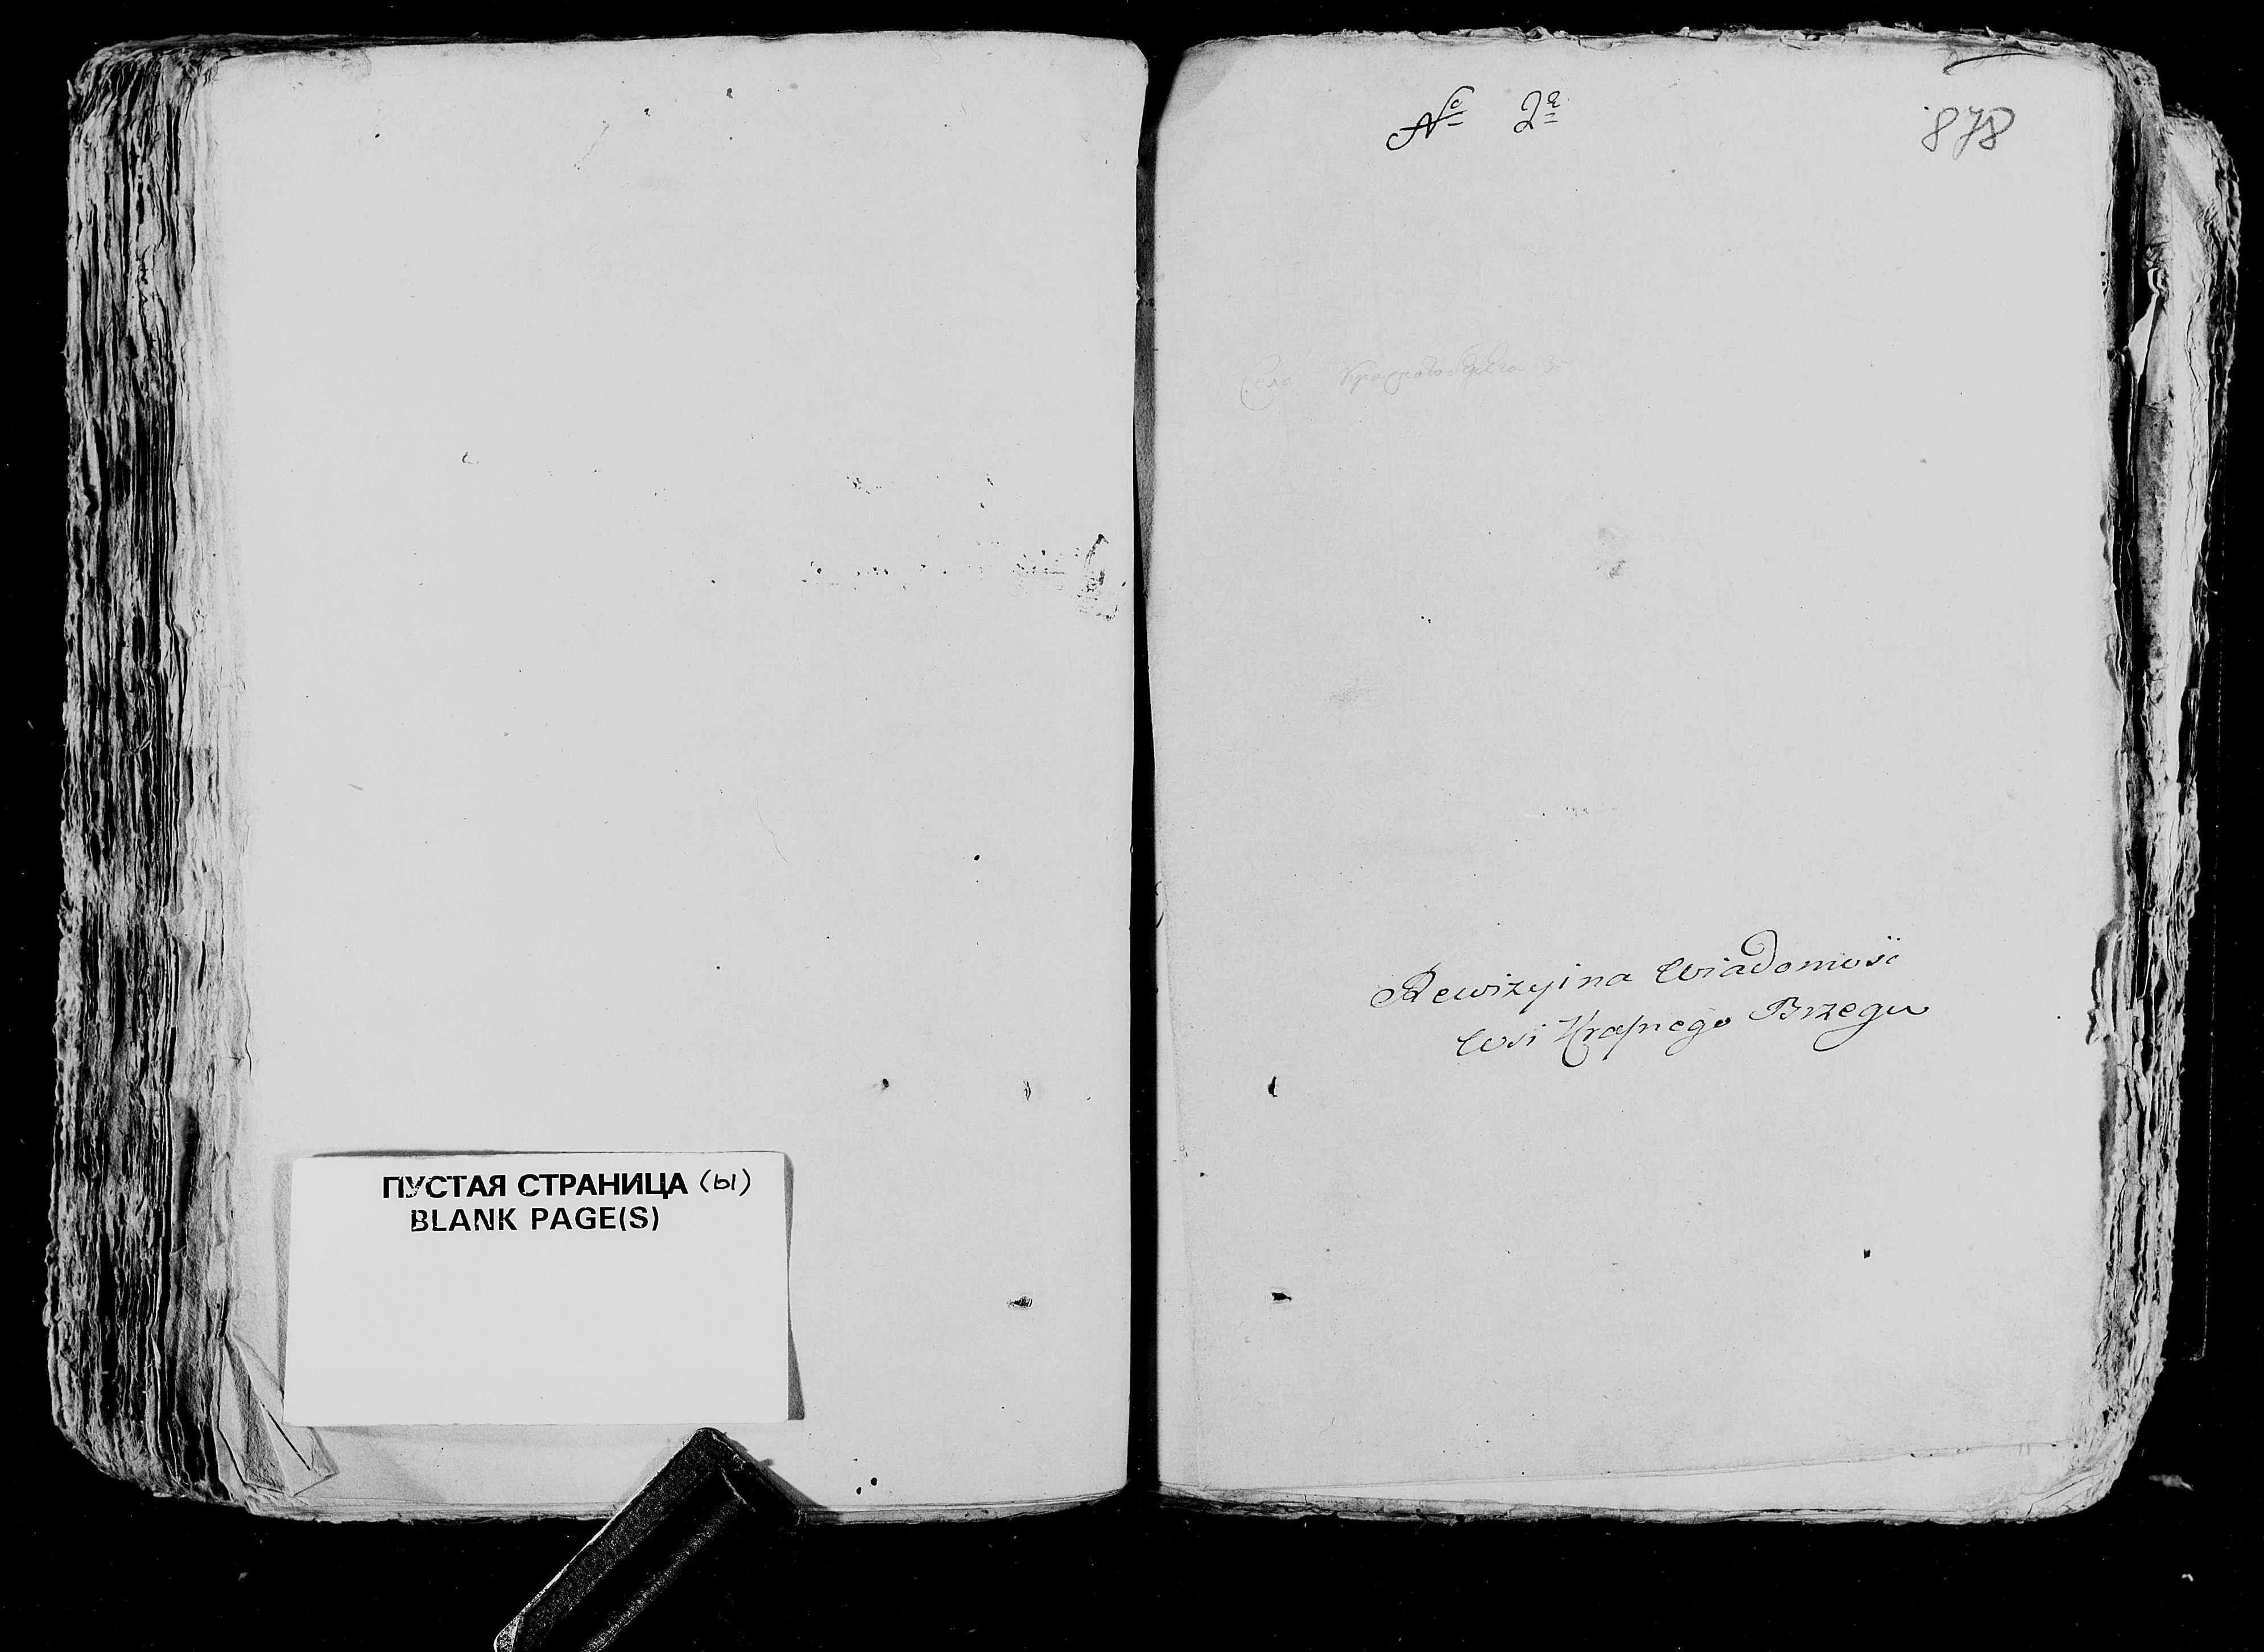 ПУСТАЯ СТРАНИЦА (ы)
BLANK PAGE(S)
№ 2а
878
Села
Rewizyina Wiadomość
Wsi Krasnego Brzegu